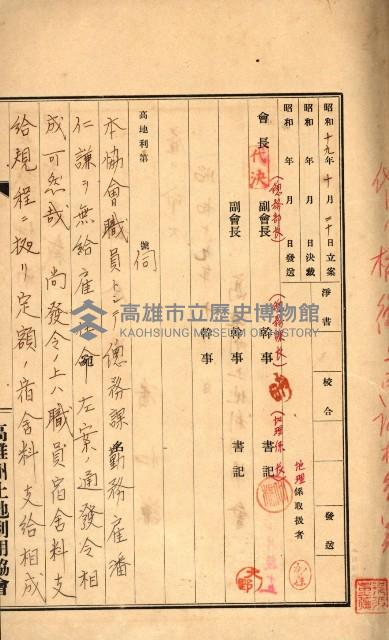 昭和十九年十月二十日立案
昭和　年　月　日決裁
昭和　年　月　日發送
淨書
校合
發送
會長
代決
(總務部長)
副會長
副會長
(總務課長)
幹事
幹事
幹事
(地理係長)
書記
書記
地理係取扱者
高地利第　　號
伺
本協會職員トシテ總務課勤務雇潘
仁謙ヲ無給雇任命左案ノ通發令相
成可然哉　尚發令ノ上ハ職員宿舍料支
給規程ニ拠リ定額ノ宿舍料支給相成
高雄州土地利用協會
高雄市立歷史博物館
KAOHSIUNG MUSEUM OF HISTORY